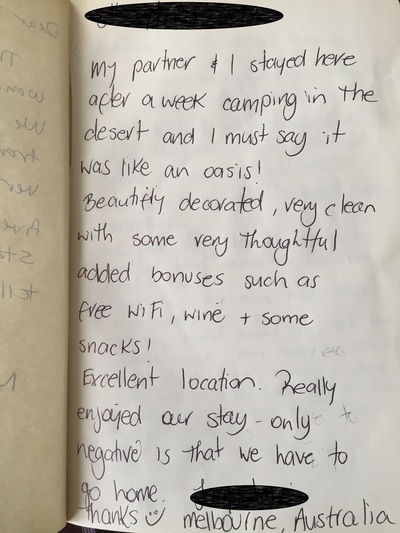 my partner & I stayed here
after a week camping in the
desert and I must say it
was like an oasis!
Beautifly decorated, very clean
with some very thoughtful
added bonuses such as
free WiFi, wine + some
snacks!
Excellent location. Really
enjoyed our stay - only
negative is that we have to
go home.
Thanks ☺ melbourne, Australia